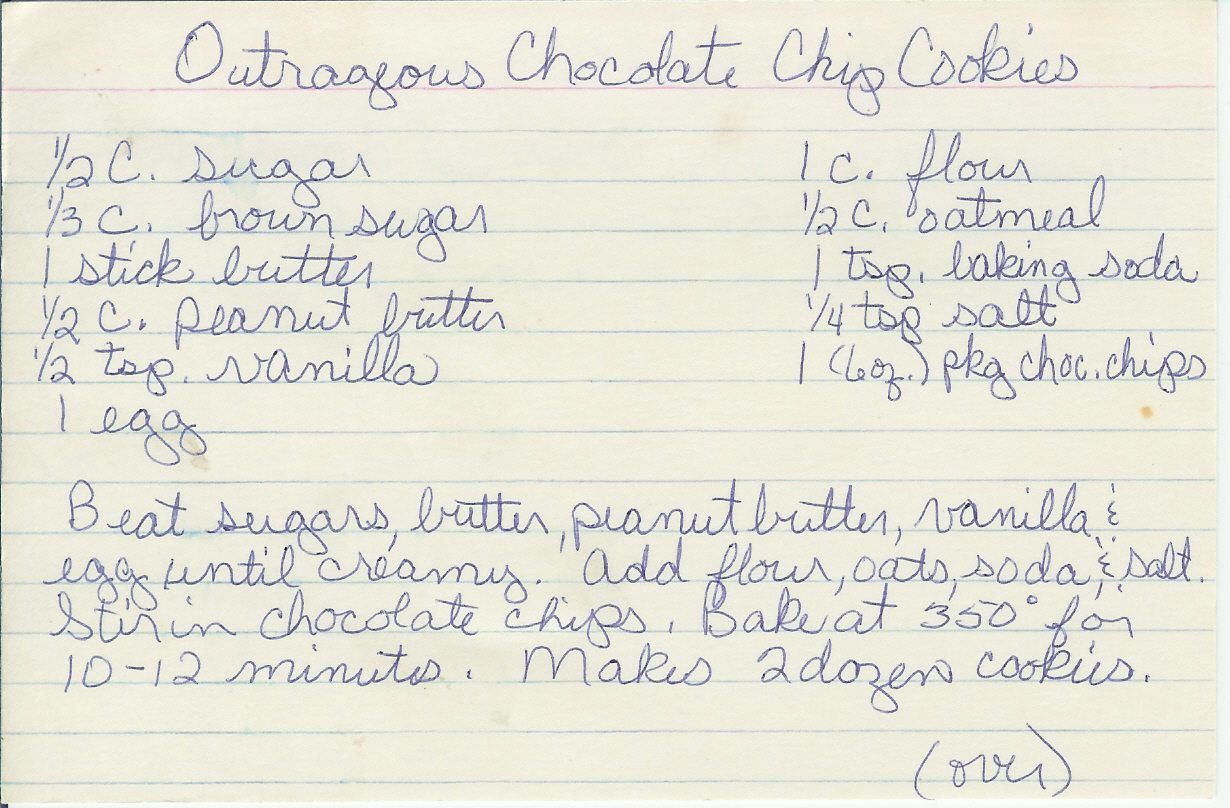 Outrageous Chocolate Chip Cookies
1/2 C. sugar
1/3 C. brown sugar
1 stick butter
1/2 C. peanut butter
1/2 tsp. vanilla
1 egg
1 c. flour
1/2 C. oatmeal
1 tsp. baking soda
1/4 tsp salt
1 (6 oz.) pkg choc. chips
Beat sugars, butter, peanut butter, vanilla &
egg until creamy. Add flour, oats, soda, & salt.
Stir in chocolate chips. Bake at 350° for
10-12 minutes. Makes 2 dozen cookies.
(over)